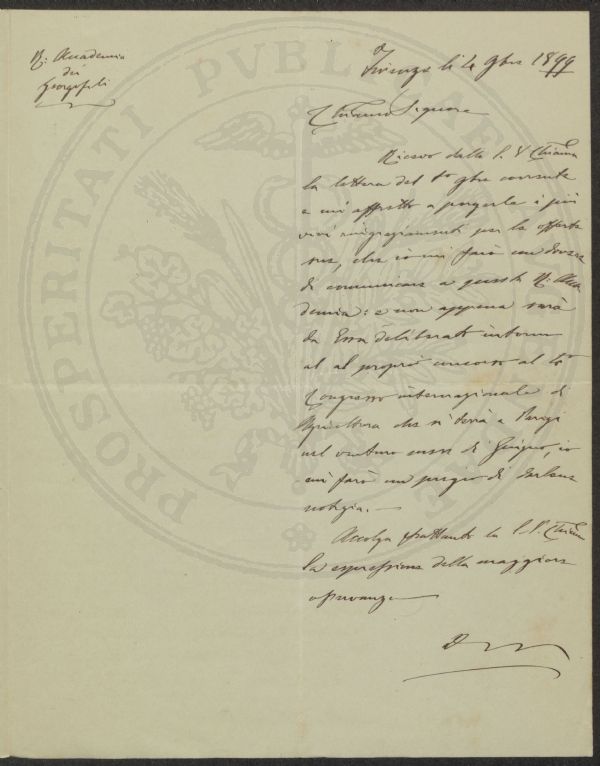 R. Accademia
dei
Georgofili
Firenze li 4 9bre 1899
Chiarmo Signore
Ricevo dalla S. V. Chiarma
la lettera del 1o 9bre corrente
e mi affretto a porgerle i più
vivi ringraziamenti per la offerta
sua, che io mi farò un dovere
di comunicare a questa R. Acca
demia: e non appena sarà
da Essa deliberato intorno
al al proprio concorso al
Congresso internazionale di
Agricoltura che si terrà a Parigi
nel venturo mese di Giugno, io
mi farò un pregio di darlene
notizia.—
Accolga frattanto la S. V. Chiarma
la espressione della maggiore
osservanza
PROSPERITATI PUBLICAE